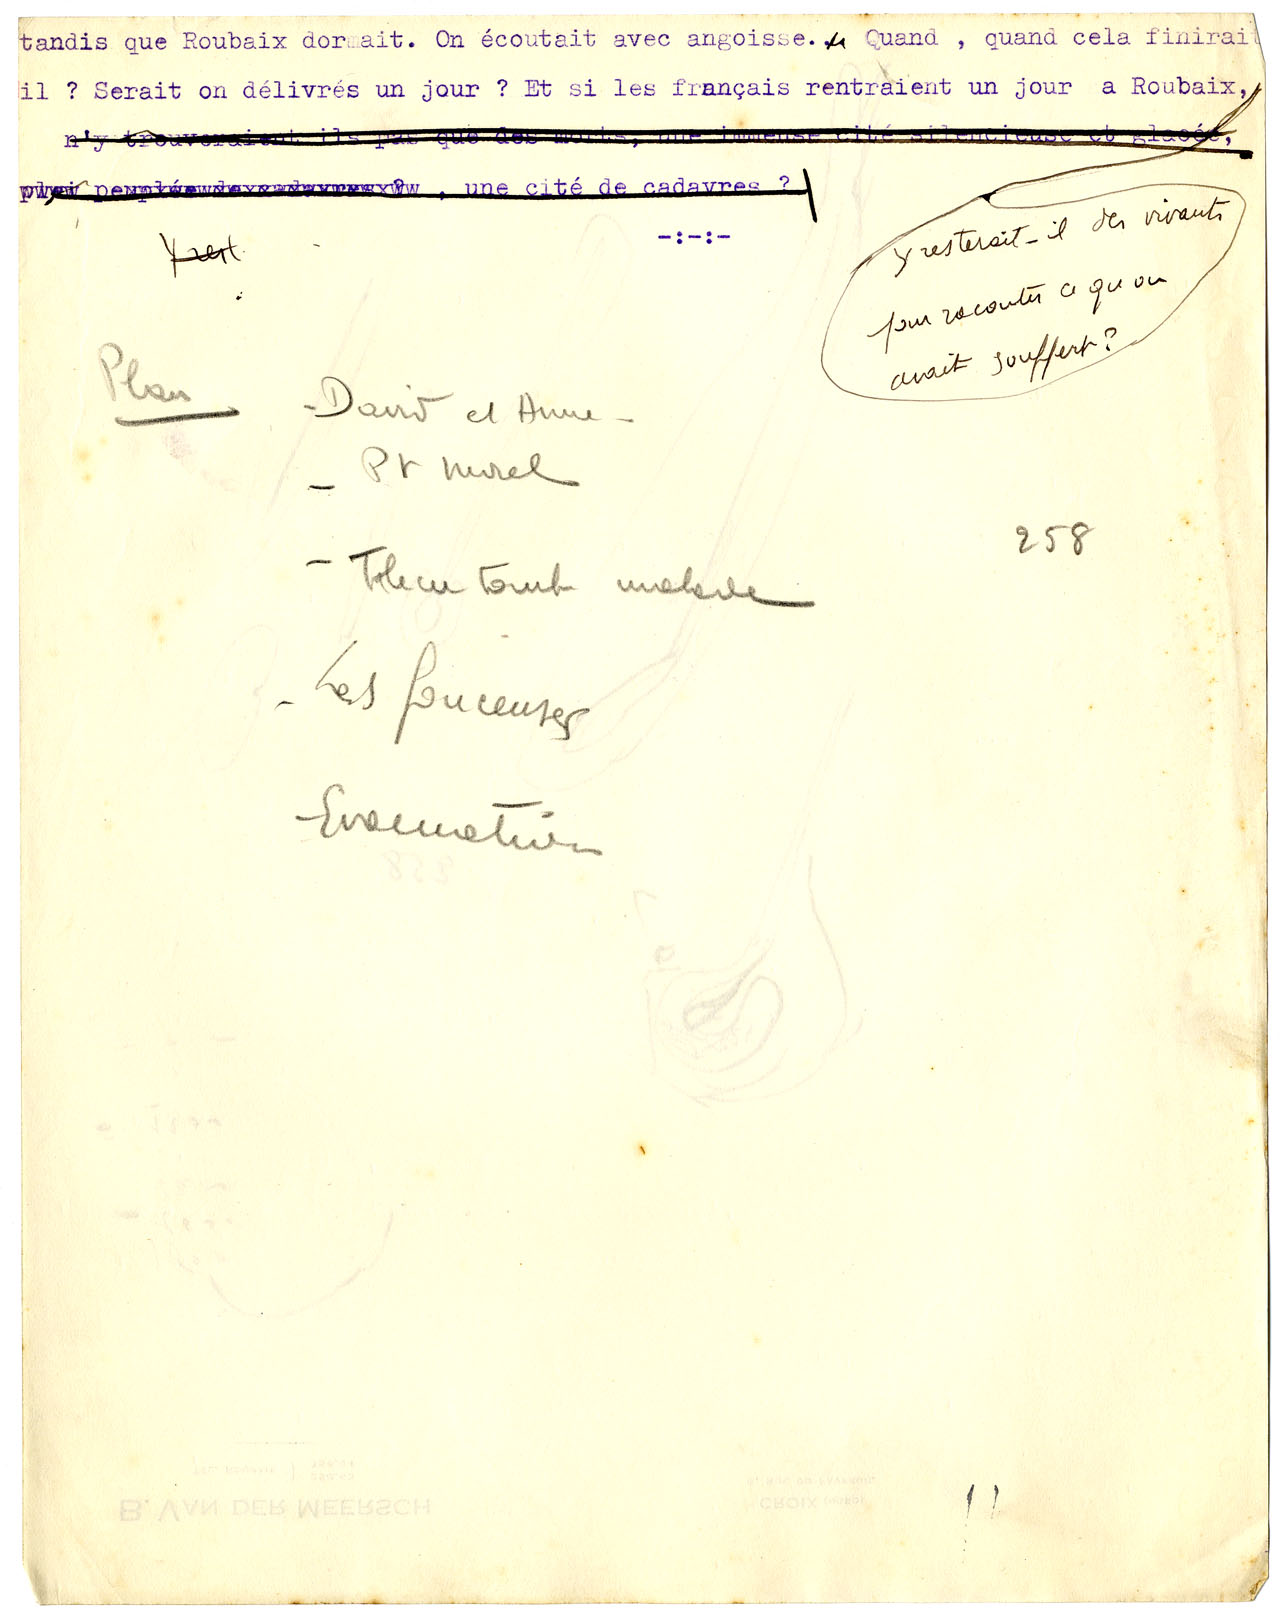 tandis que Roubaix dormait. On écoutait avec angoisse. Quand , quand cela finirait
il ? Serait on délivrés un jour ? Et si les français rentraient un jour a Roubaix,
n'y trouveraient ils pas que des morts, une immense cité silencieuse et glacée,
peuplée de cadavres ? , une cité de cadavres ?
-:-:-
Y rest
y resterait-il des vivants
pour raconter ce qu'on
avait souffert ?
Plan
- David et Anne -
- Pt Morel
258
- tombe malade
- Les
- Evacuation
258
TEL. ROUBAIX
B. VAN DER MEERSCH
CROIX (NORD)